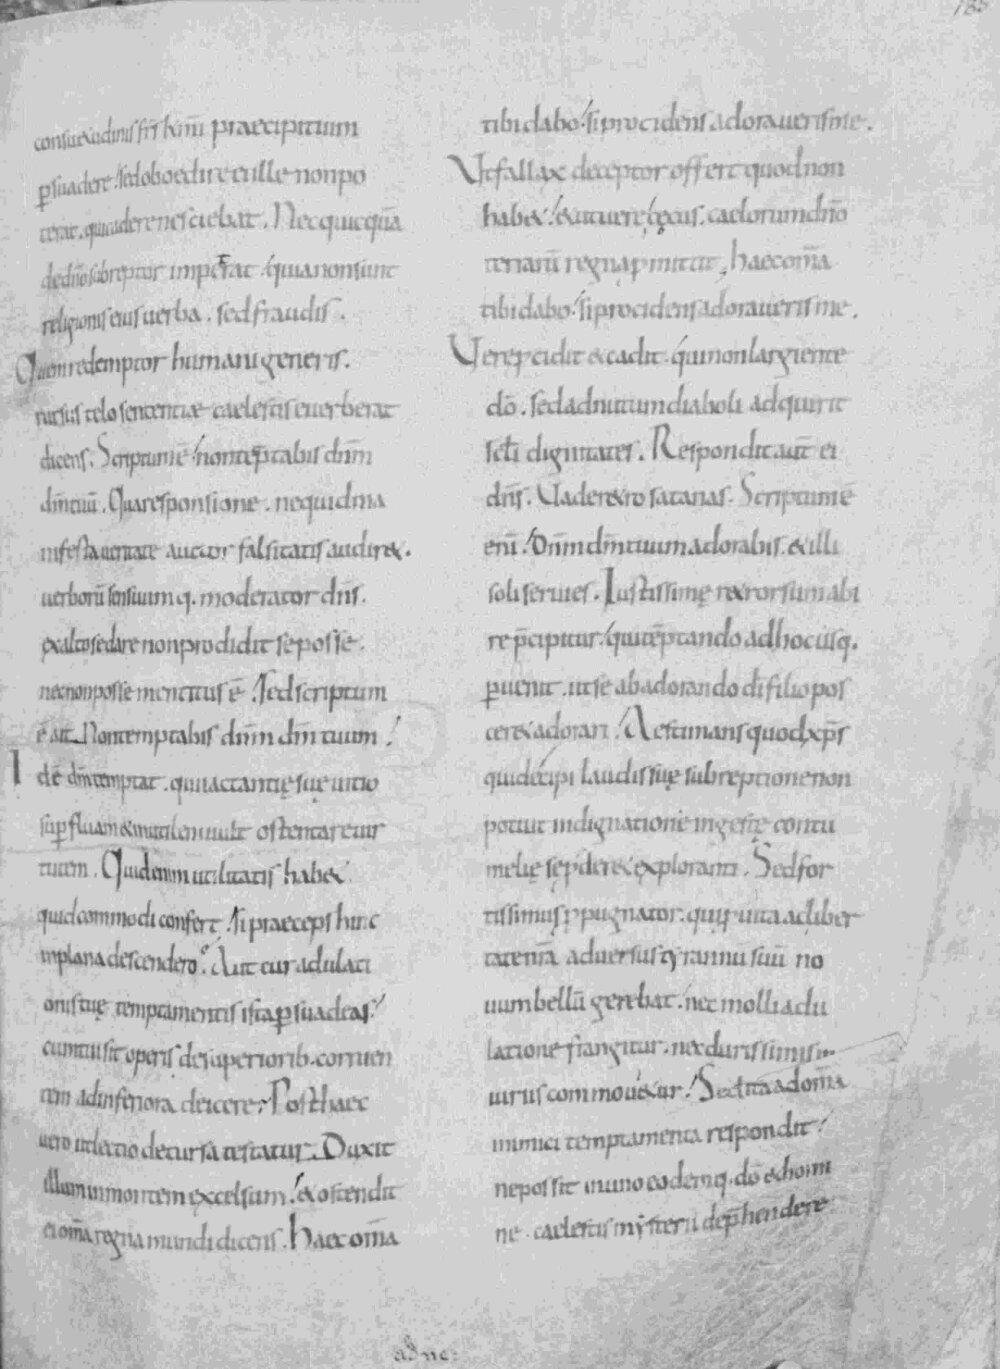 185
consuexadinis fr̄s hnīī praecipitium
ꝑsuadere. sed oboedire ei ille non po
terat. qui cadere nesciebat. Nec quicquā
de dn̄o subreptor imperat. quia non sunt
religionis eius uerba. sed fraudis.
Quem redemptor humani generis.
rursus telo sententiae caelestis euerberat
dicens. Scriptum ē. non tēptabis dn̄m
dm̄ tuū. Qua responsione. ne quid ina
infesta ueritate auctor falsitatis audiret.
uerborū sensuumq. moderator dn̄s.
ex alto se dare non prodidit se posse.
nec non posse mentitus ē. Sed scriptum
ē ait. Non temptabis dn̄m dm̄ tuum.
Idē dm̄ temptat. qui iactantię suę uitio
suꝑfluam & inutilem uult ostentare uir
tutem. Quid enim utilitatis habet
quid commodi confert. si praeceps hinc
in plana descendero. Aut cur adulati
onis tuę temptamentis ista ꝑsuadeas.
cum tui sit operis de superiorib. corruen
tem ad inferiora deicere. Post haec
uero ut lectio decursa testatur. Duxit
illum in montem excelsum. & ostendit
ei om̄a regna mundi dicens. Haec om̄a
tibi dabo. si procidens adoraueris me.
Ut fallax deceptor offert quod non
habet. & ut uere locus. caelorum dn̄o
terrarū regna ꝑmittit, haec om̄a
tibi dabo. si procidens adoraueris me.
Vere procidit & cadit. qui non largiente
dō. sed ad nutum diaboli adquirit
sc̄li dignitates. Respondit aut̄ ei
dn̄s. Vade retro satanas. Scriptum ē
eni͞. Dn̄m dm̄ tuum adorabis. & illi
soli seruies. Iustissimę retrorsum abi
re p̄cipitur. qui tēptando ad hoc usq.
ꝑuenit. ut se ab adorando dī filio pos
ceret adorari. Aestimans quod xp̄s
qui decipi laudis suę subreptione non
potuit indignatione ingestę contu
melię se proderet exploranti. Sed for
tissimus ꝓpugnator. qui pro uita ac liber
tate nr̄a aduersus tyrannū suū no
uum bellū gerebat. nec molli adu
latione frangitur. nec durissimis in
iuriis commouetur. Sed ita ad om̄a
inimici temptamenta respondit.
ne possit in uno eodemq. dō & homi
ne. caelestis mysterii dep̄hendere
ad ne: